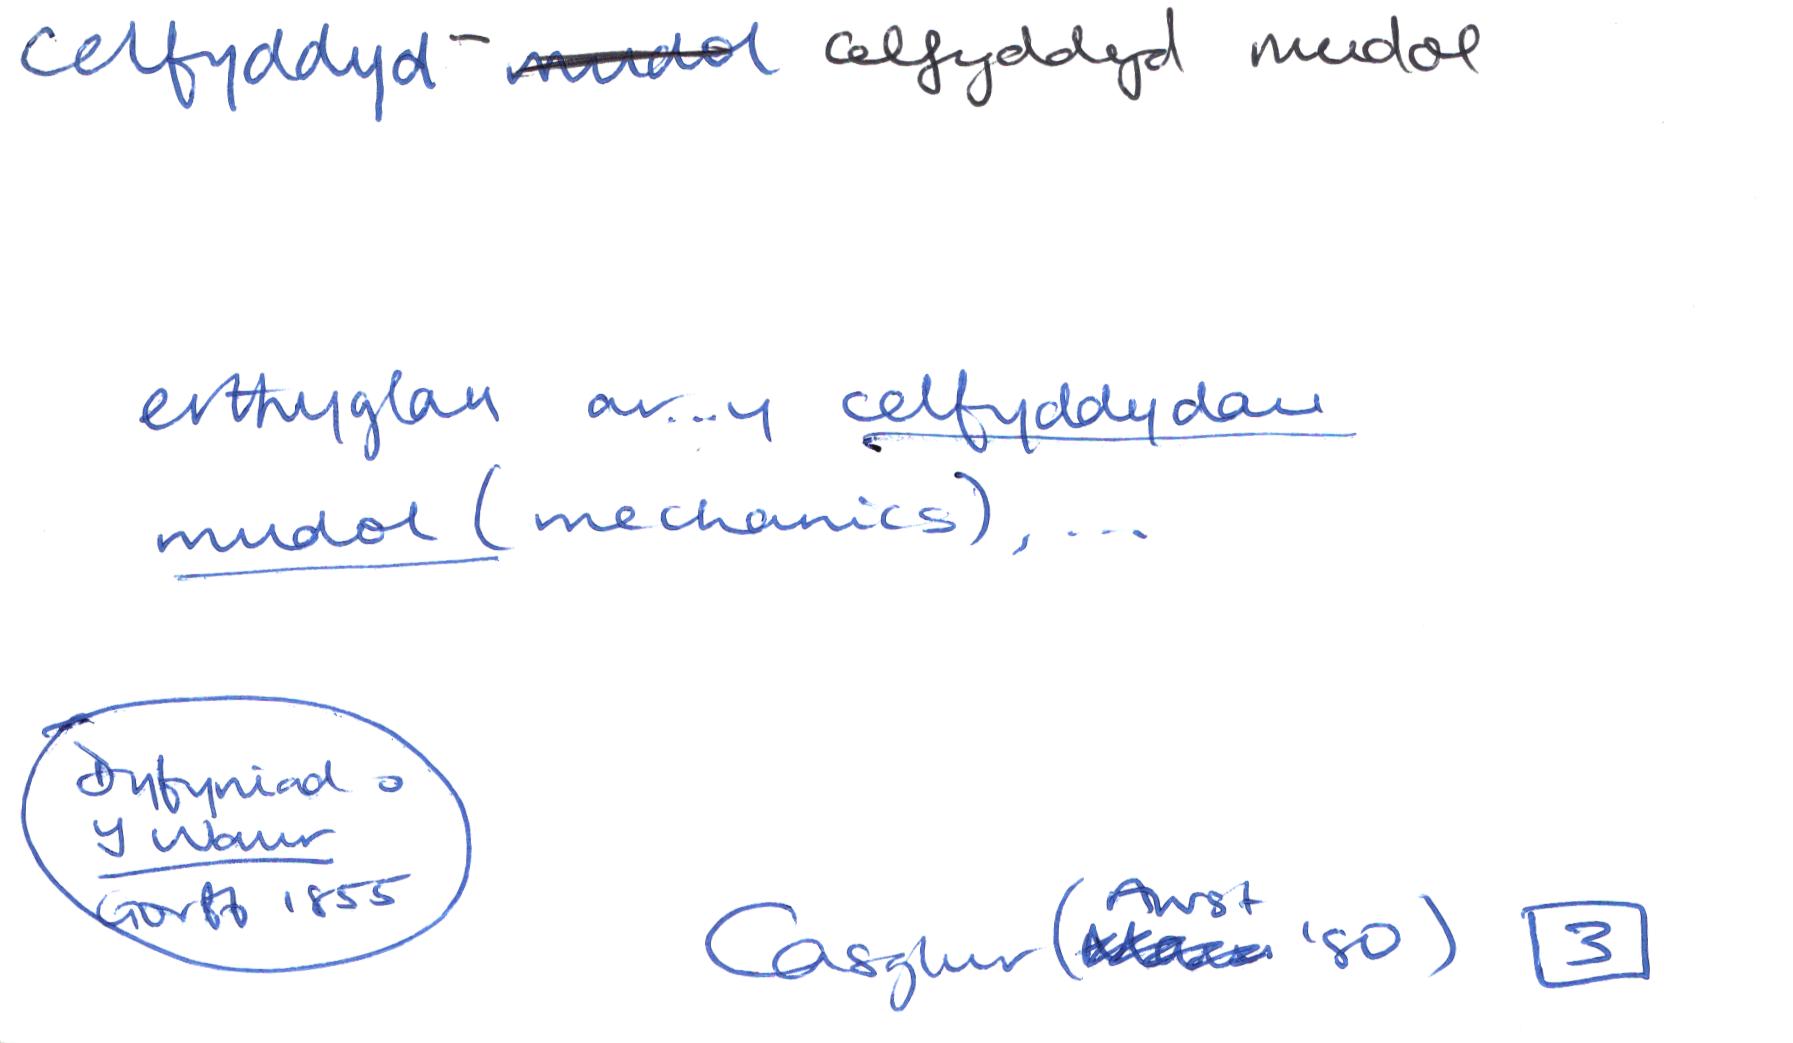 celfyddyd - mudol celfyddyd mudol
erthyglau ar...y celfyddydau
mudol (mechanics), ...
Dyfyniad o
Y Wawr
Gorff 1855
Casglwr (Awst '80) 3